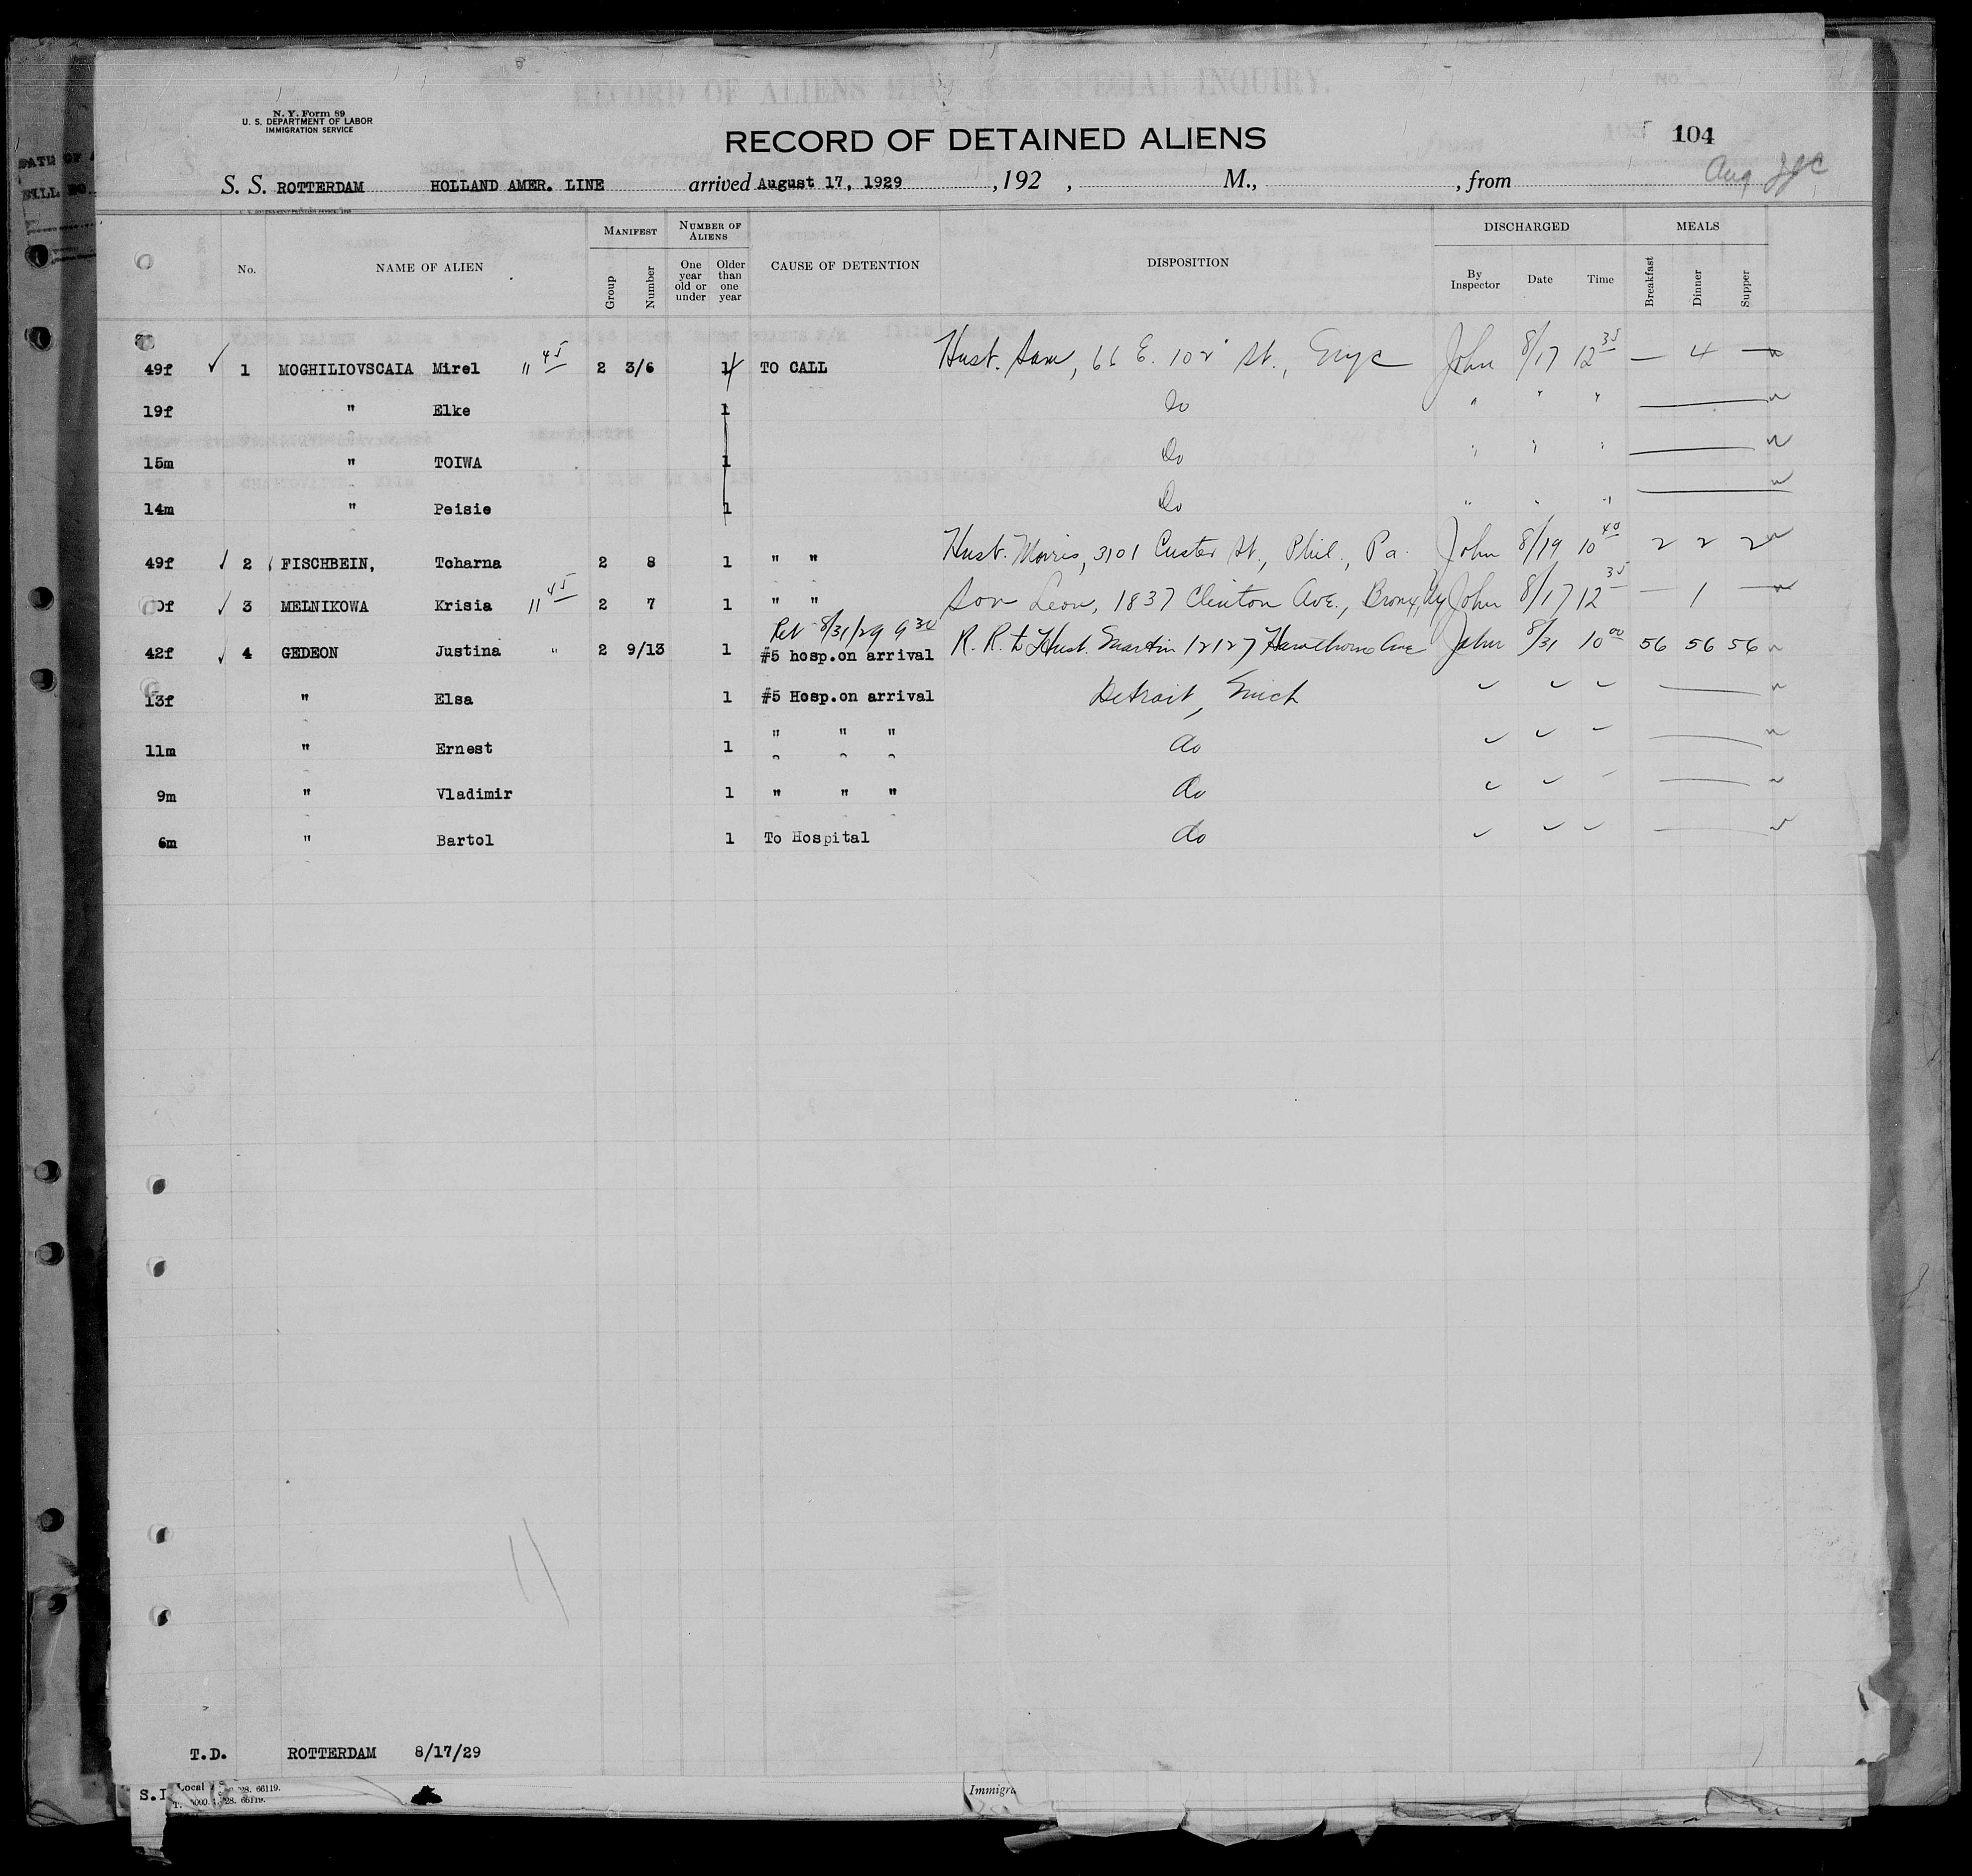 N. Y. Form 89
U. S. DEPARTMENT OF LABOR
IMMIGRATION SERVICE
RECORD OF DETAINED ALIENS
104
Aug
S. S. ROTTERDAM HOLLAND AMER. LINE arrived August 17, 1929 , 192 , M., , from
No. NAME OF ALIEN MANIFEST Group Number NUMBER OF ALIENS One year old or under Older than one year CAUSE OF DETENTION DISPOSITION DISCHARGED By Inspector Date Time MEALS Breakfast Dinner Supper
49f ✓ 1 MOGHILIOVSCAIA Mirel 11 45 2 3/6 1 4 TO CALL Hust. Sam, 66 E. 102 St., Nyc John 8/17 12 35 — 4 —
19f " Elke 1 Do " " "
15m " TOIWA 1 Do " " "
14m " Peisie 1 Do " " "
49f ✓ 2 FISCHBEIN, Tcharna 2 8 1 " " Husb. Morris, 3101 Custer St., Phil., Pa. John 8/19 10 40 2 2 2
0f ✓ 3 MELNIKOWA Krisia 11 45 2 7 1 " " Son Leon, 1837 Clinton Ave., Bronx, Ny John 8/17 12 35 — 1 —
Ret 8/31/29 9 30
42f ✓ 4 GEDEON Justina " 2 9/13 1 #5 hosp.on arrival R. R. to Husb. Martin 12127 Hawthorne Ave John 8/31 10 00 56 56 56
13f " Elsa 1 #5 Hosp.on arrival Detroit, Mich
11m " Ernest 1 " " " do
9m " Vladimir 1 " " " do
6m " Bartol 1 To Hospital do
11
T.D. ROTTERDAM 8/17/29
S.I
Immigra